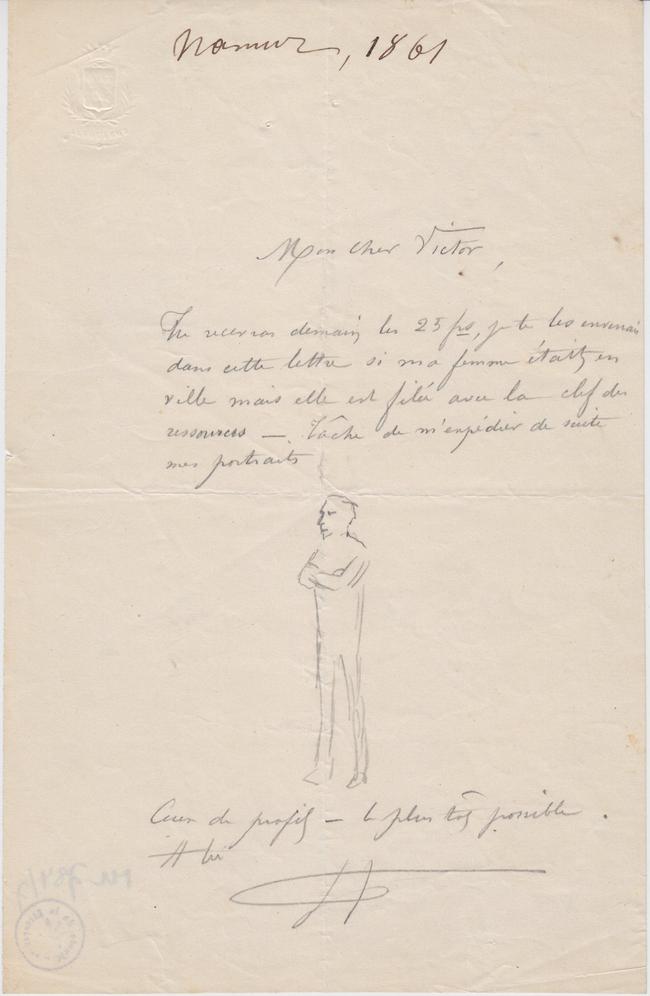 Namur, 1861
Mon cher Victor,
Tu recevras demain les 25 frs, je te les enverrais
dans cette lettre si ma femme était en
ville mais elle est filée avec la clef des
ressources — . Tâche de m'expédier de suite
mes portraits
Ceux de profil — le plus tôt possible .